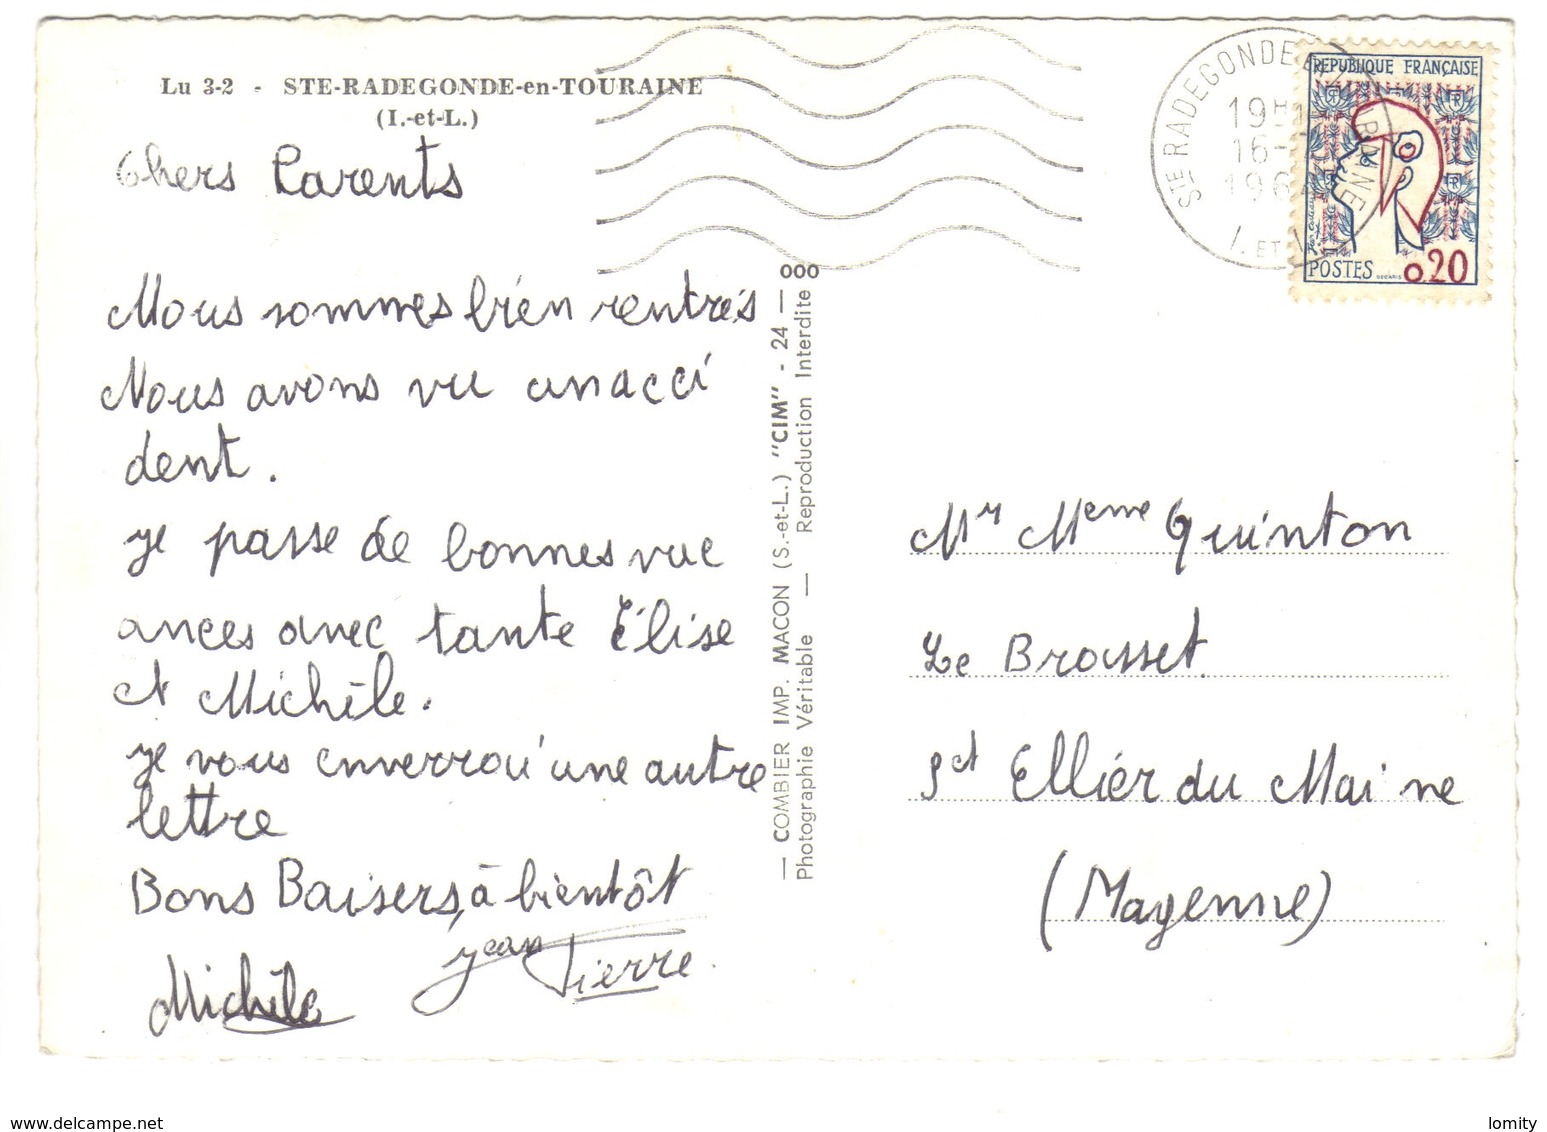 Lu 3-2 - STE-RADEGONDE-en-TOURAINE
(I.-et-L.)
Chers Parents
Nous sommes bien rentrés
Nous avons vu un acci
dent.
je passe de bonnes vac
ances avec tante Élise
et Michèle.
je vous enverrai une autre
lettre
Bons Baisers, à bientôt
Michèle
jean Pierre.
000
— COMBIER IMP. MACON (S.-et-L.) "CIM" - 24 —
Photographie Véritable — Reproduction Interdite
STE RADEGONDE
19H
16-
196
I. ET L.
REPUBLIQUE FRANÇAISE
POSTES
DECARIS
0.20
Mr Meme Quinton
Le Brosset.
St Ellier du Mai ne
(Mayenne)
delcampe.net
lomity